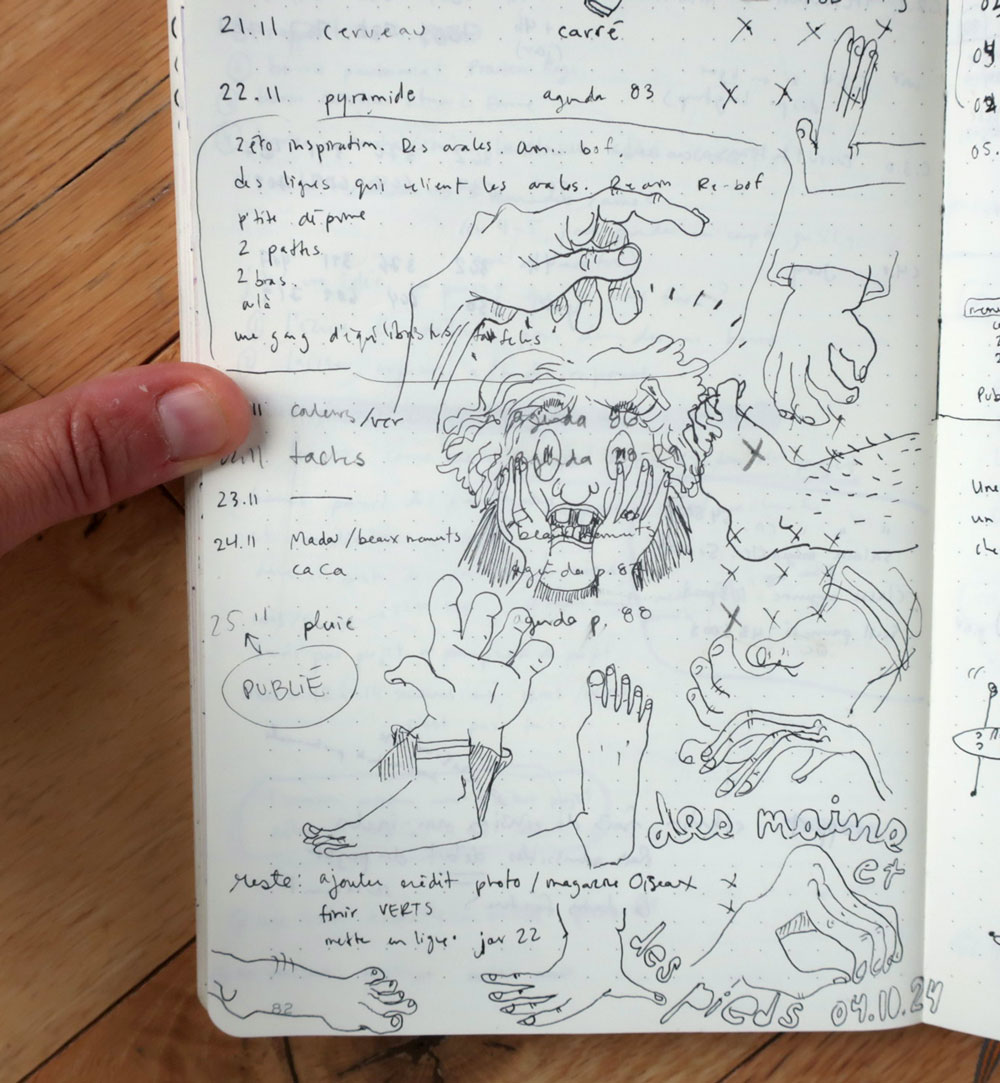 21.11 cerveau carré X X X
22.11 pyramide agenda 83 X X X
zéro inspiration. Des ovales am... bof.
des lignes qui relient les ovales. Re-am Re-bof
p'tite déprime
2 paths
2 bras
une gang d'équilibristes
11 couleurs/ver agenda 86
.11 taches agenda X
23.11
24.11 Madas/beaux moments beaux moments X X X
caca agenda p. 87 X X X
25.11 pluie agenda p. 88 X X
PUBLIÉ
des mains
et
reste: ajouter crédit photo / magazine Oiseaux X
finir VERTS X
mettre en ligne. jav 22
des
pieds 04.10.24
82
02
04
02
05.
Pub
Une
un
che